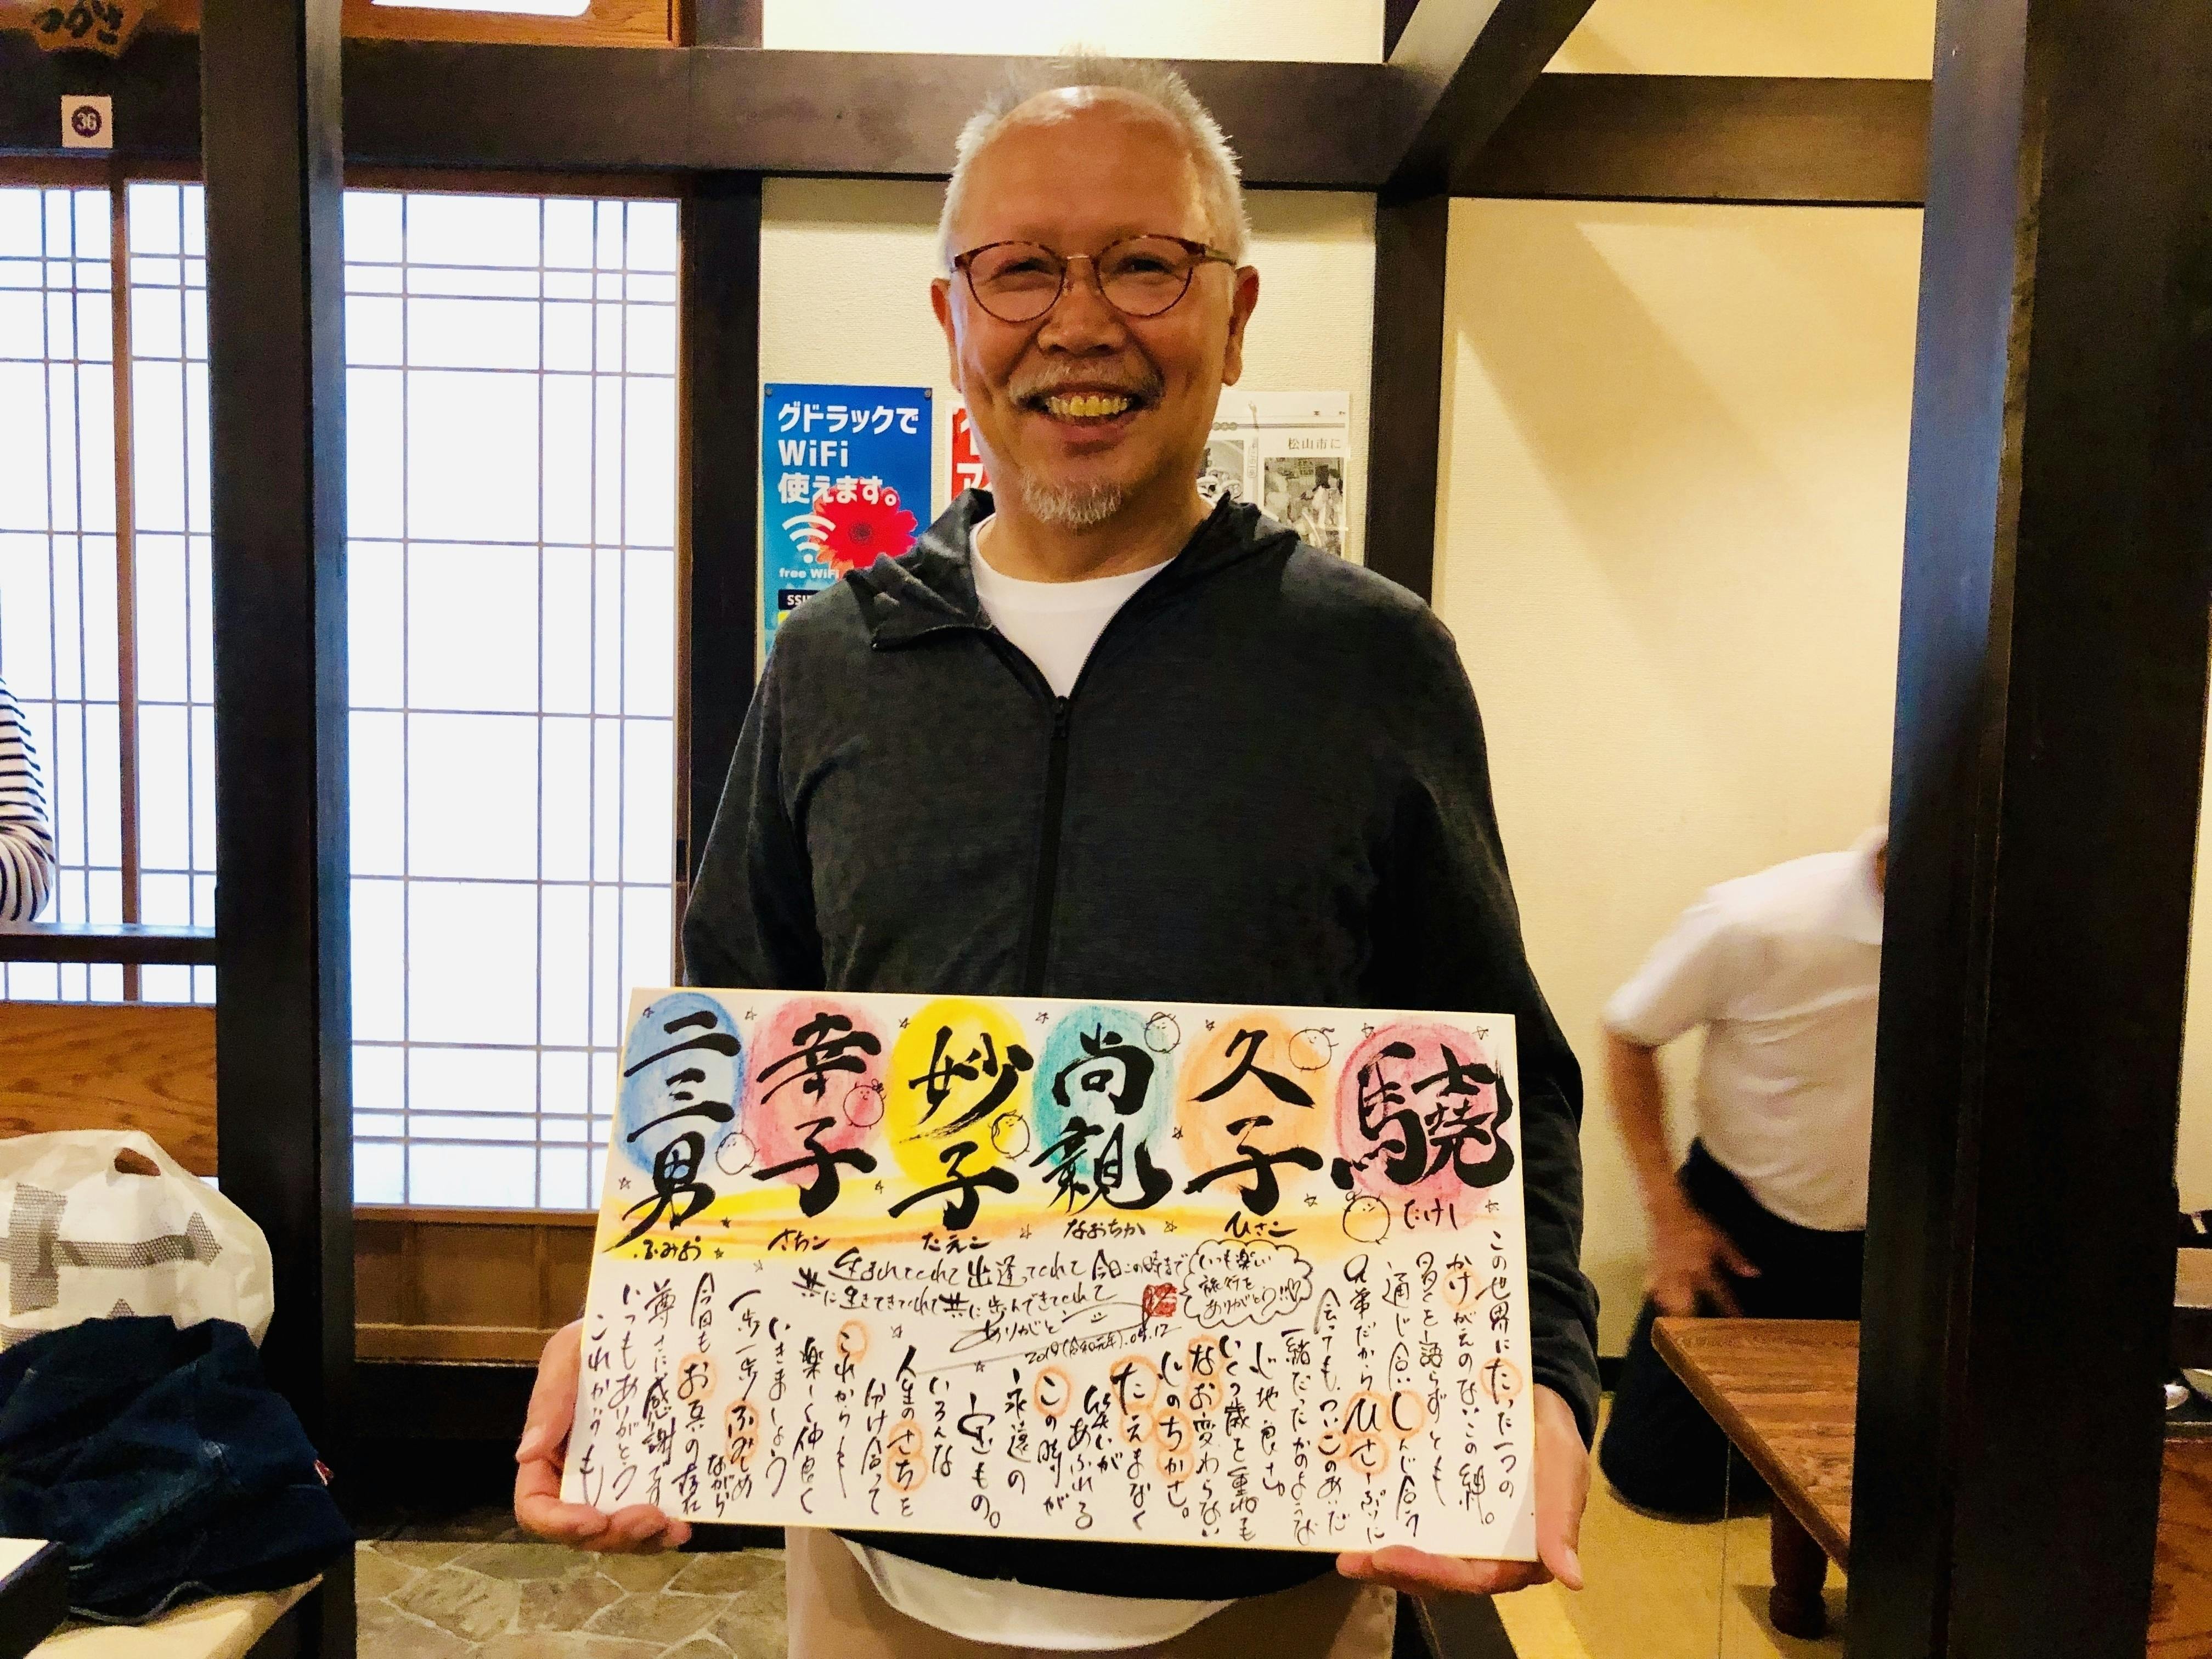 36
グドラックで
WiFi
使えます。
free WiFi
松山市に
驍
たけし
久子
ひさこ
尚親
なおちか
妙子
たえこ
幸子
さちこ
二三男
ふみお
生まれてくれて出逢ってくれて今日この時まで
共に生きてきてくれて共に歩んできてくれて
ありがとう
いつも楽しい
旅行を
ありがとう!!
この世界にたった一つの
かけがえのないこの絆。
多くを語らずとも
通じ合い しんじ合う
兄弟だから ひさしぶりに
会っても、ついこのあいだ
一緒だったかのような
心地良さ
いくつ歳を重ねても
なお変わらない
心のちかさ。
たえまなく
笑いが
あふれる
この時が
永遠の
宝もの。
いろんな
人生のさちを
分け合って
これからも
楽しく仲良く
いきましょう
一歩一歩ふみしめ
ながら
今日もお互の存在
尊さに感謝す
いつもありがとう
これからも